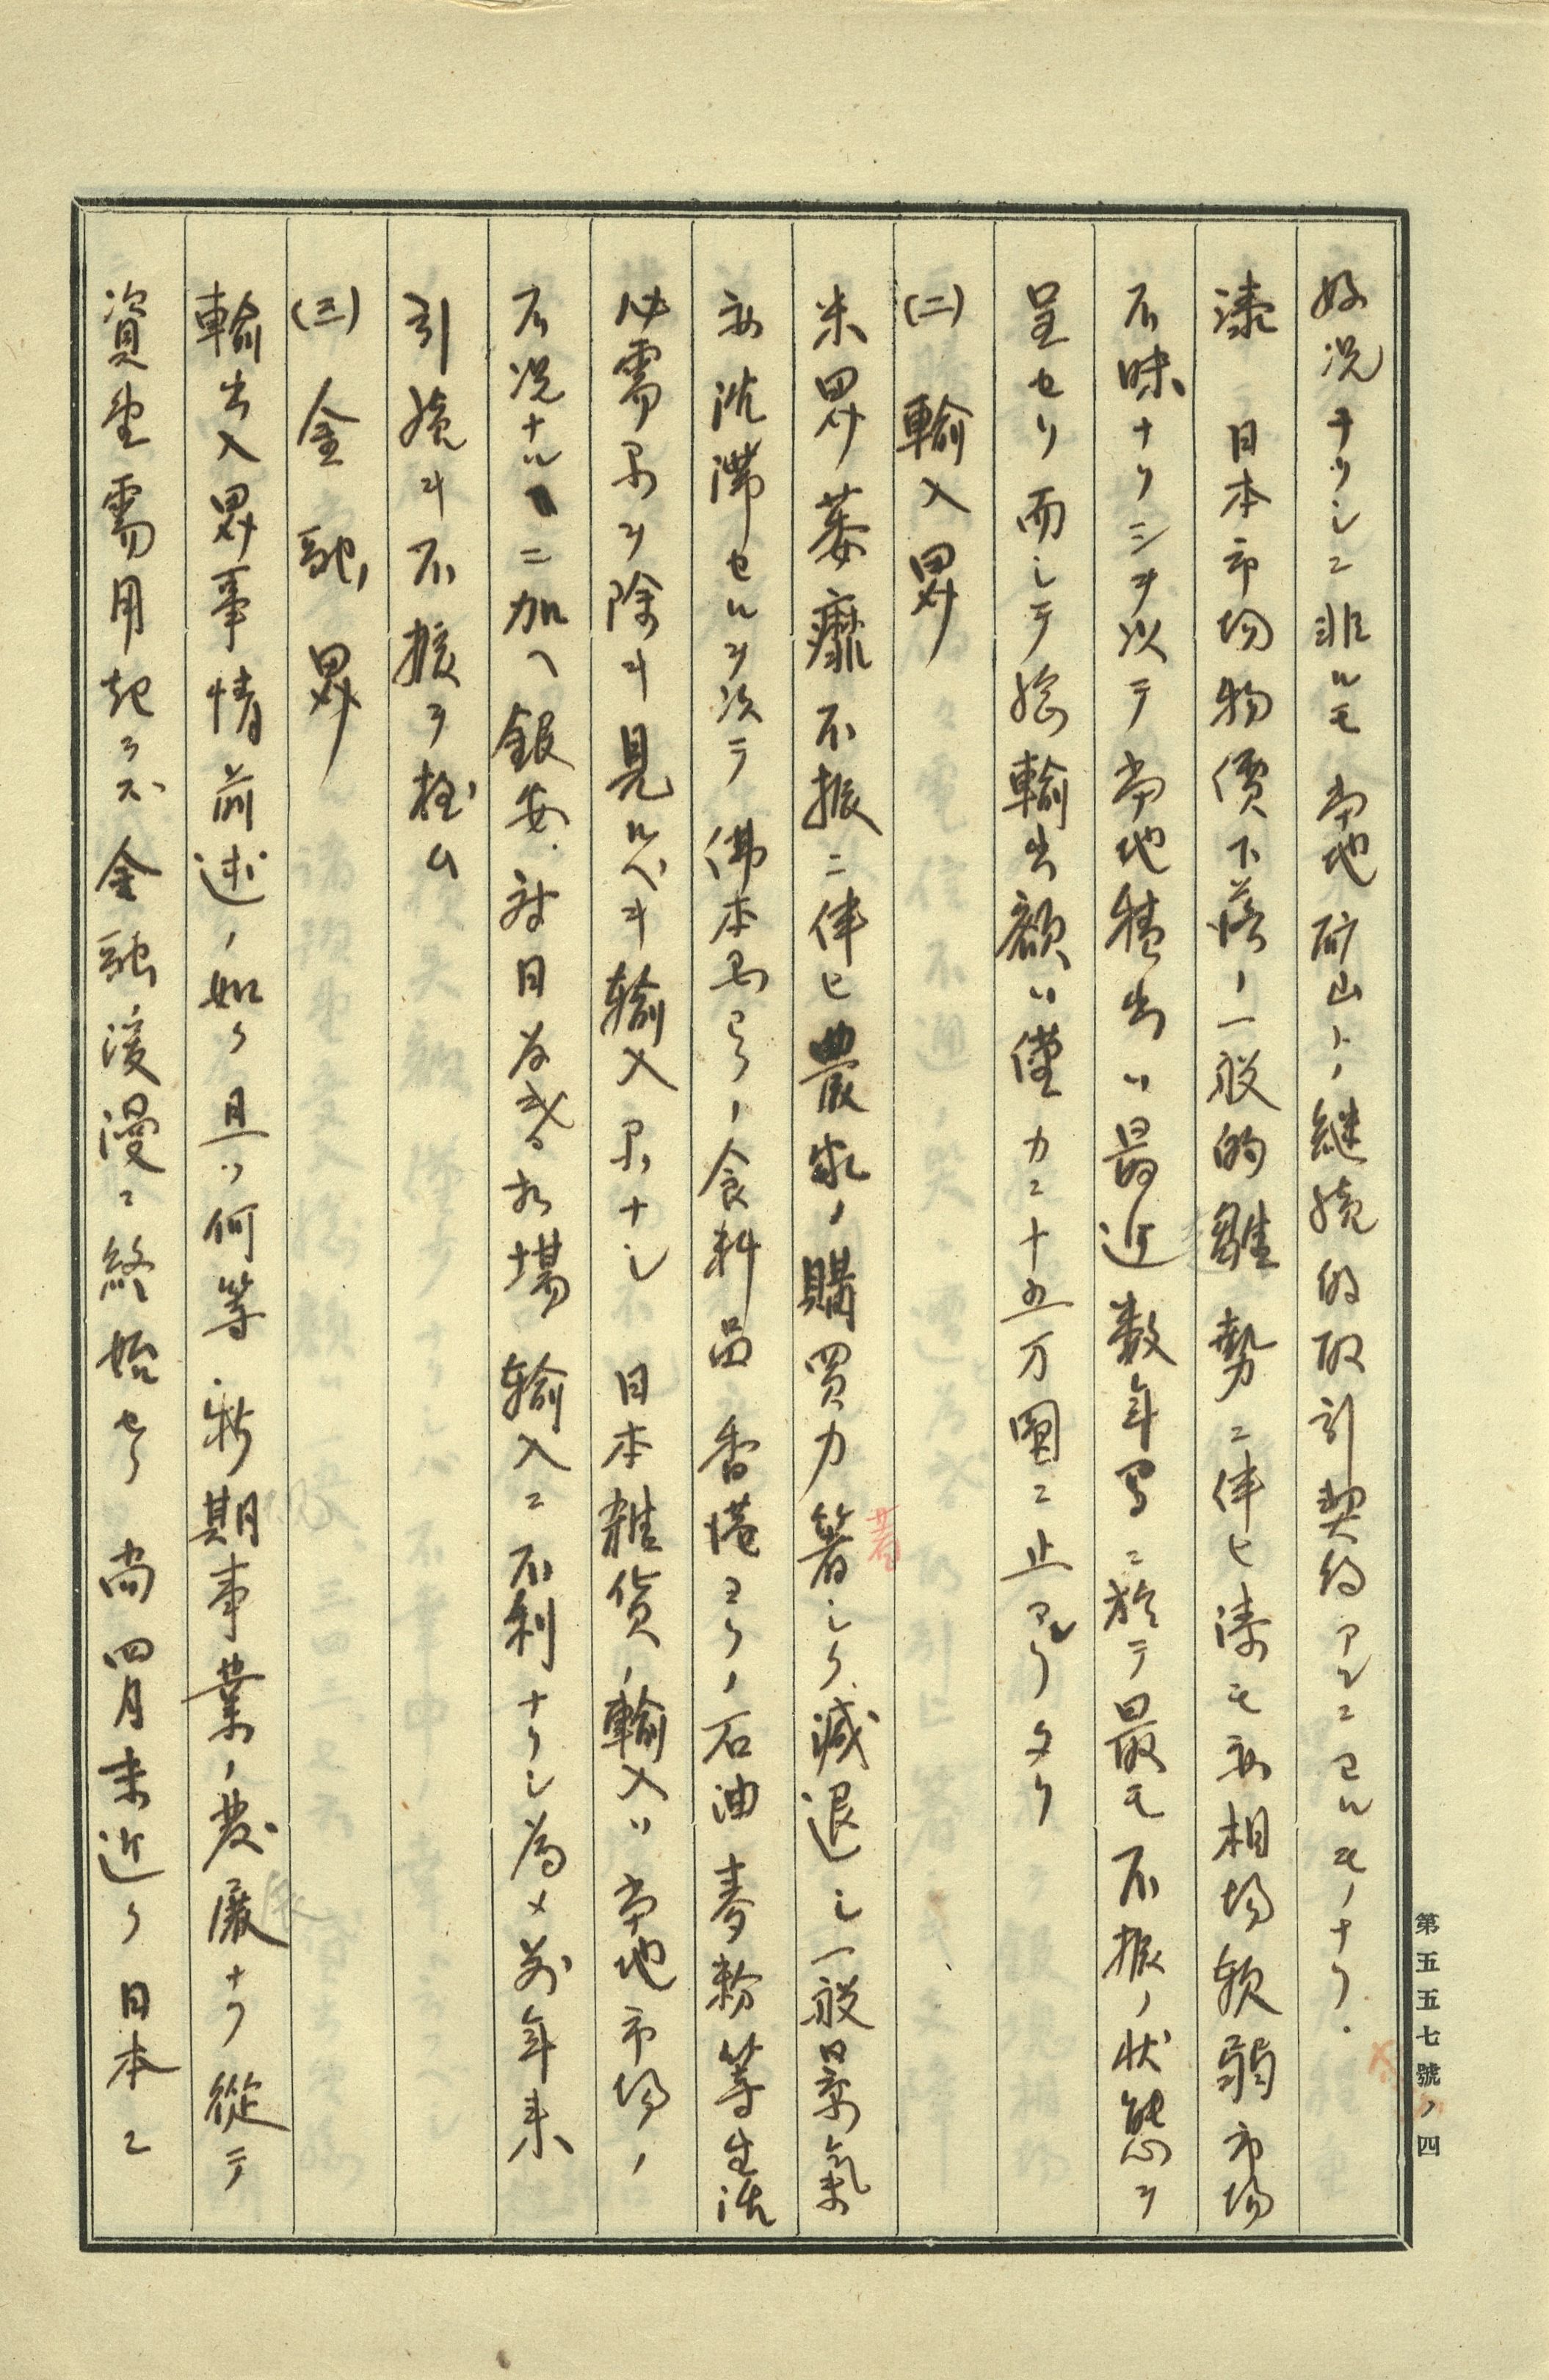 好况ナリシニ非ルモ当地砿山ト、継続的取引契約アルニヨルモノナリ.
漆　日本市场物價下落ノ一般的難勢ニ伴ヒ漆モ亦相场軟弱市场
不味ナリシヲ以テ当地積出ハ最近数年間ニ於テ最モ不振ノ状態ヲ
呈セリ而シテ総輸出額ハ僅カニ十五万圓ニ止マレリタリ
(二)輸入界
米界萎靡不振ニ伴ヒ農家ノ購買力著シク減退シ一般景氣
亦沈滞セルヲ以テ佛本国ヨリノ食料品香港ヨリノ石油麦粉等生活
必需品ヲ除キ見ルベキ輸入品ナシ日本雑貨ノ輸入ハ当地市场ノ
不况ナルニ加ヘ銀安.対日為替相場輸入ニ不利ナリシ為メ前年来
引続キ不振ヲ極ム
(三)金融界
輸出入界事情前述ノ如ク且ツ何等新期事業ノ発展ナク從テ
資金需用起ラズ金融緩漫ニ終始セリ尚四月末近ク日本ニ
第五五七號ノ四